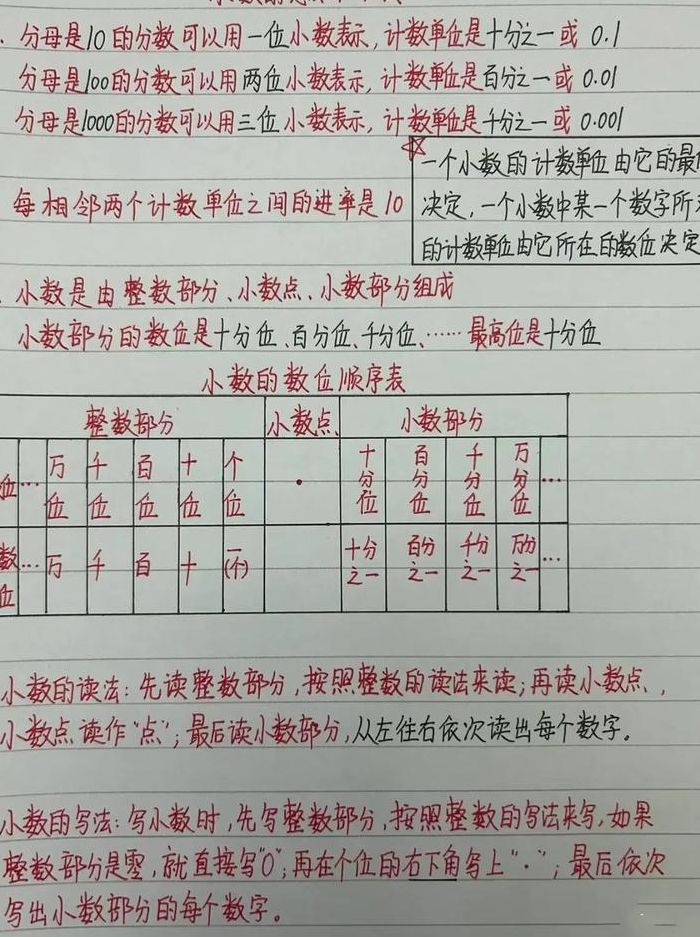 、分母是10的分数可以用一位小数表示,计数单位是十分之一或 0.1
分母是100的分数可以用两位小数表示,计数单位是百分之一或 0.01
分母是1000的分数可以用三位小数表示,计数单位是千分之一或 0.001
☆一个小数的计数单位由它的最
每相邻两个计数单位之间的进率是10
决定,一个小数中某一个数字所
的计数单位由它所在的数位决定
、小数是由整数部分、小数点、小数部分组成
小数部分的数位是十分位、百分位、千分位、…… 最高位是十分位
小数的数位顺序表
整数部分 小数点 小数部分
位 … 万位 千位 百位 十位 个位 · 十分位 百分位 千分位 万分位 …
数位 … 万 千 百 十 一(个) 十分之一 百分之一 千分之一 万分之一 …
小数的读法:先读整数部分,按照整数的读法来读;再读小数点,
小数点读作“点”;最后读小数部分,从左往右依次读出每个数字。
小数的写法:写小数时,先写整数部分,按照整数的写法来写,如果
整数部分是零,就直接写“0”;再在个位的右下角写上“·”;最后依次
写出小数部分的每个数字。